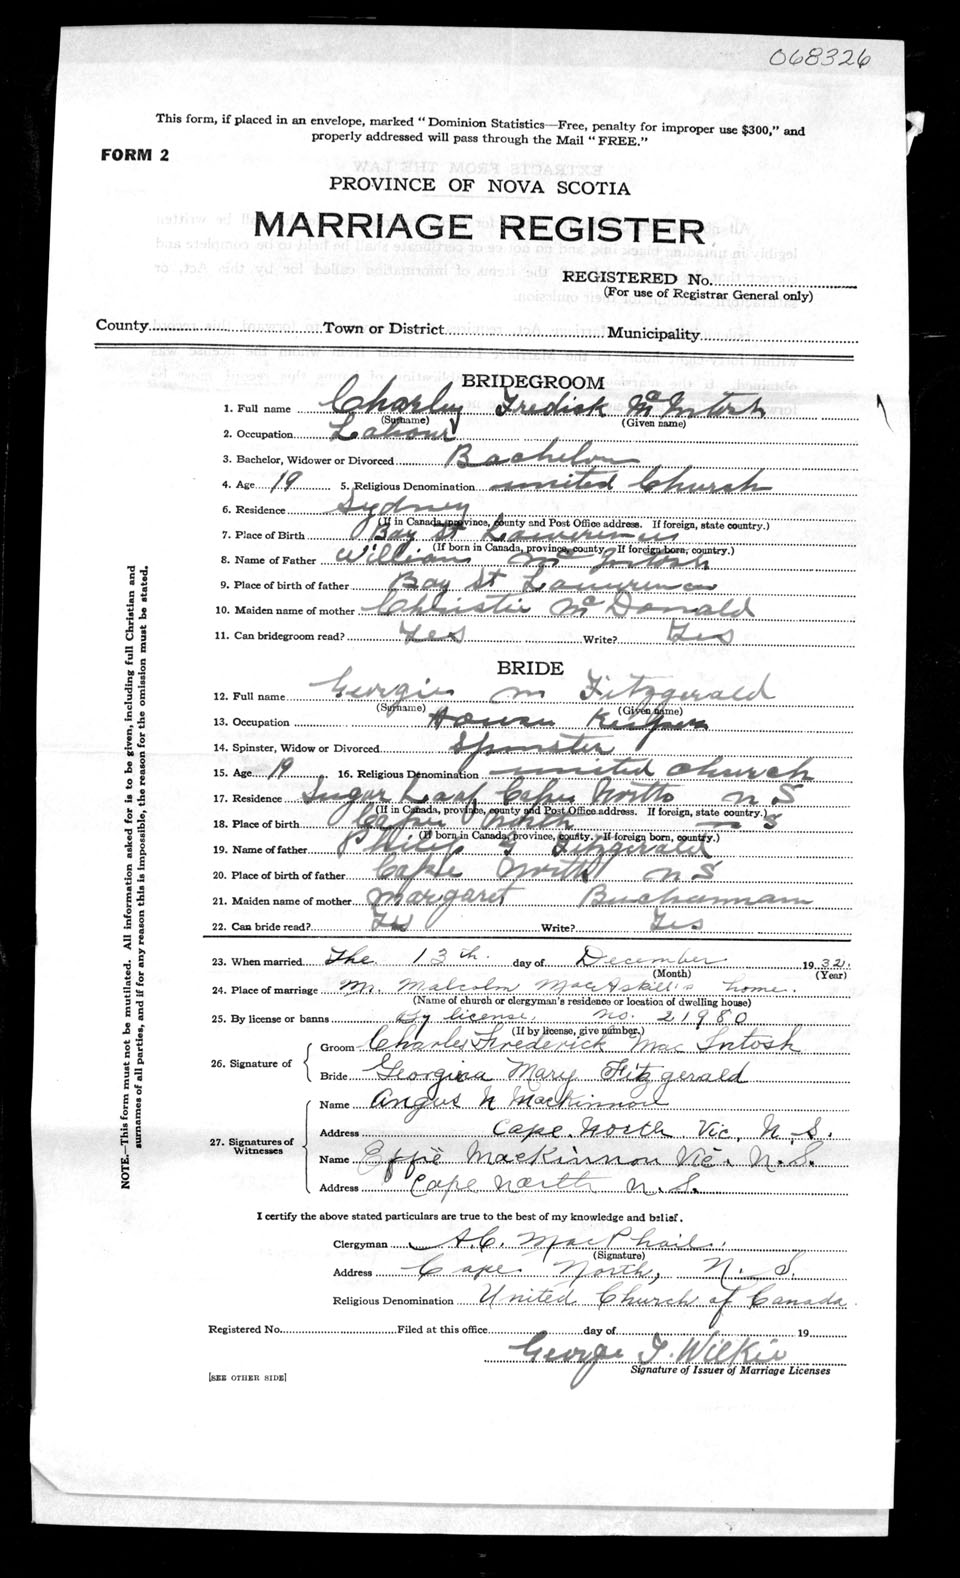 068326
This form, if placed in an envelope, marked "Dominion Statistics—Free, penalty for improper use $300," and
properly addressed will pass through the Mail "FREE."
FORM 2
PROVINCE OF NOVA SCOTIA
MARRIAGE REGISTER
REGISTERED No.
(For use of Registrar General only)
County Town or District Municipality
BRIDEGROOM
1. Full name Charley Fredisk McIntosh
(Surname) (Given name)
2. Occupation Labour
3. Bachelor, Widower or Divorced Bachelor
4. Age 19 5. Religious Denomination united Church
6. Residence Sydney
(If in Canada, province, county and Post Office address. If foreign, state country.)
7. Place of Birth Bay St Lawrence
(If born in Canada, province, county. If foreign born, country.)
8. Name of Father William McIntosh
9. Place of birth of father Bay St Lawrence
10. Maiden name of mother Christie McDonald
11. Can bridegroom read? Yes Write? Yes
BRIDE
12. Full name Georgie M Fitzgerald
(Surname) (Given name)
13. Occupation House Keeper
14. Spinster, Widow or Divorced Spinster
15. Age 19 16. Religious Denomination united church
17. Residence Sugar Loaf Cape North N S
(If in Canada, province, county and Post Office address. If foreign, state country.)
18. Place of birth Cape North N S
(If born in Canada, province, county. If foreign born, country.)
19. Name of father Philip G Fitzgerald
20. Place of birth of father Cape North N S
21. Maiden name of mother Margaret Buchannan
22. Can bride read? Yes Write? Yes
23. When married The 13th. day of December 1932.
(Month) (Year)
24. Place of marriage Mr. Malcolm MacAskill's home.
(Name of church or clergyman's residence or location of dwelling house)
25. By license or banns By license. no. 21980
(If by license, give number.)
26. Signature of Groom Charles Frederick MacIntosh
Bride Georgina Mary Fitzgerald
27. Signatures of Witnesses Name Angus N MacKinnon
Address Cape North Vic, N.S.
Name Effie MacKinnon Vic. N.S.
Address Cape North N.S.
I certify the above stated particulars are true to the best of my knowledge and belief.
Clergyman A.C. MacPhail.
(Signature)
Address Cape North, N.S.
Religious Denomination United Church of Canada.
Registered No. Filed at this office day of 19
George T. Wilkie
Signature of Issuer of Marriage Licenses
[SEE OTHER SIDE]
NOTE.—This form must not be mutilated. All information asked for is to be given, including full Christian and
surnames of all parties, and if for any reason this is impossible, the reason for the omission must be stated.